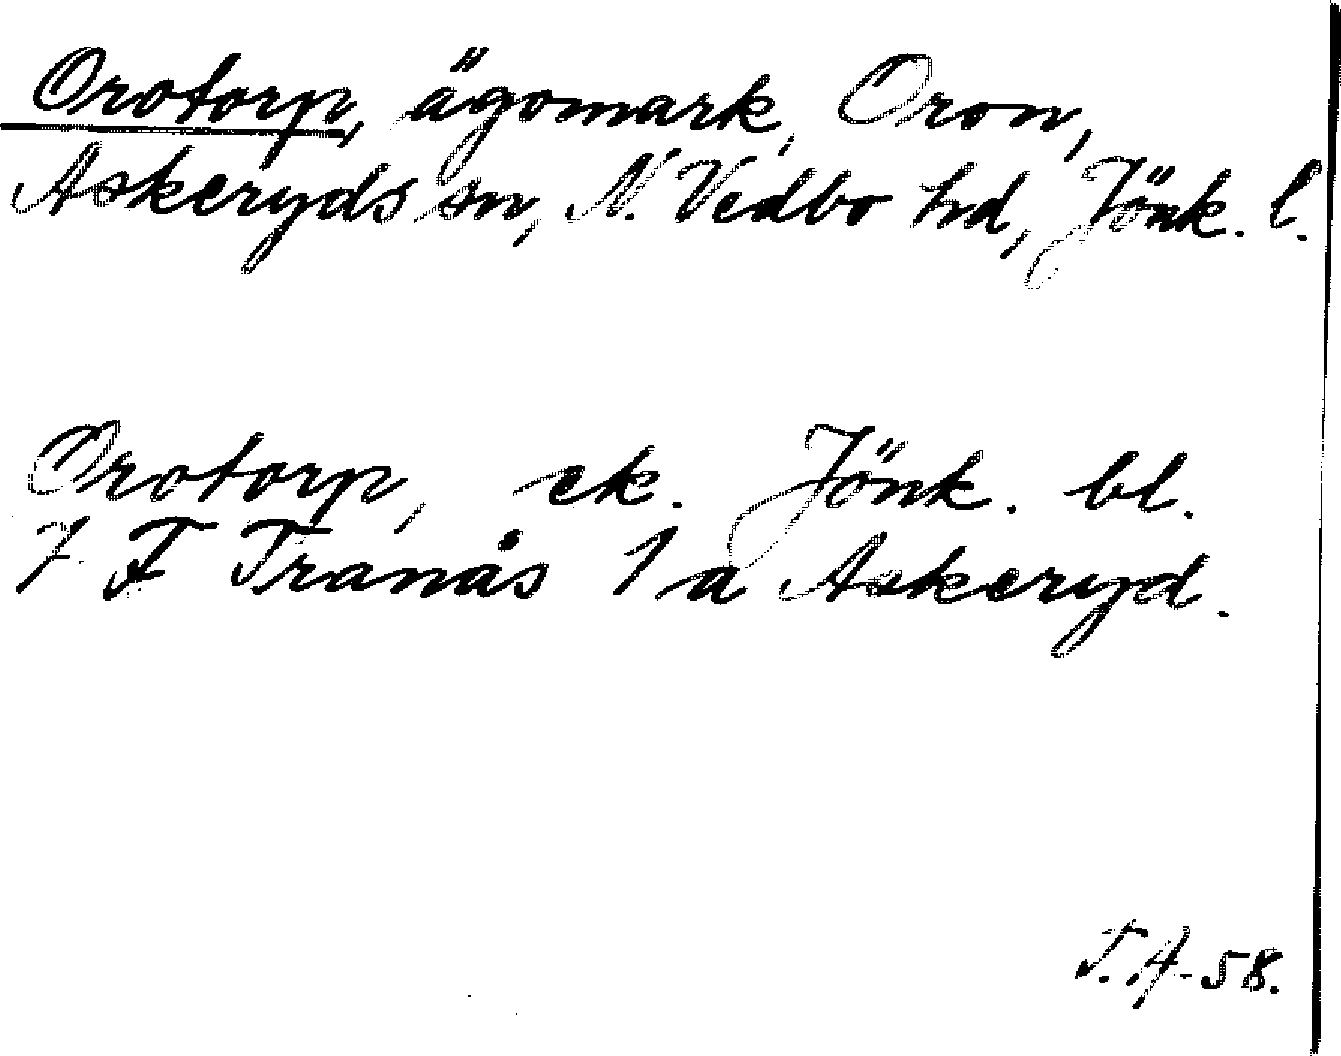 Orotorp, ägomark, Oron,
Askeryds sn, N. Vedbo hd, Jönk. l.
Orotorp, ek. Jönk. bl.
7 F Tranås 1 a Askeryd.
T. A-58.